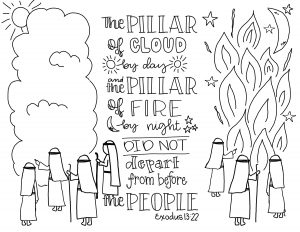 the PILLAR
of CLOUD
by day
and the PILLAR
of FIRE
by night
DID NOT
depart
from before
the PEOPLE
exodus 13:22